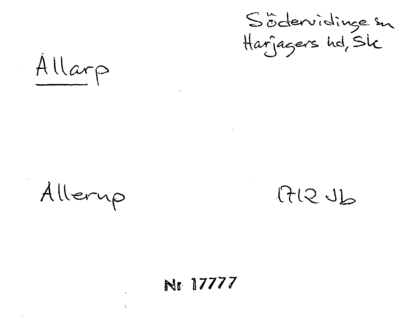 Södervidinge sn
Harjagers hd, Sk
Allarp
Allerup 1712 Jb
Nr 17777